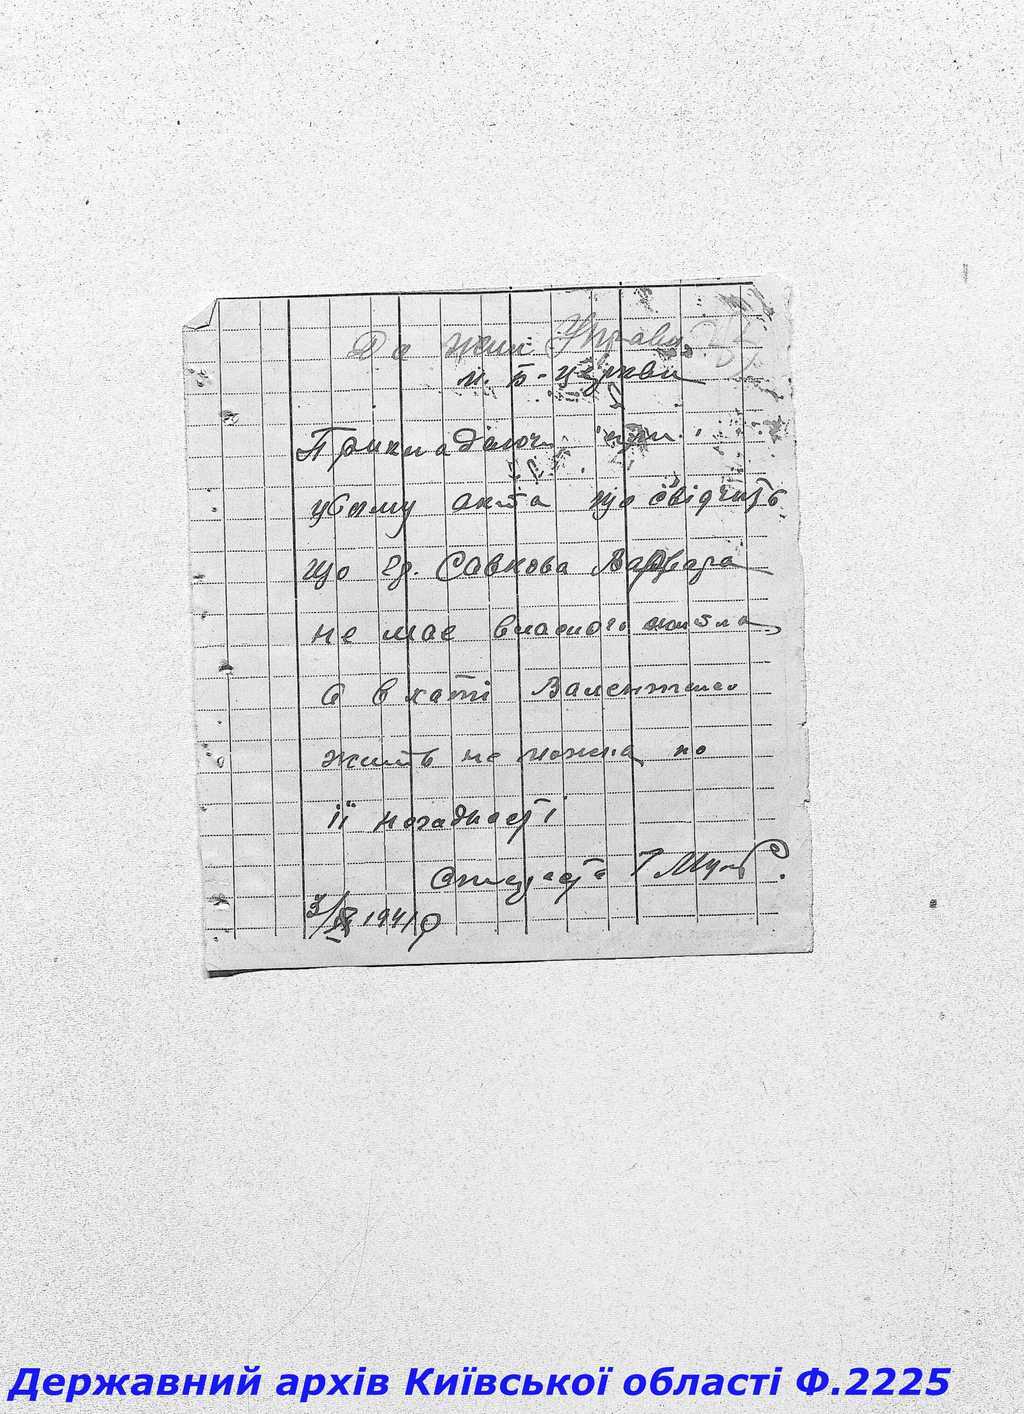 До жил Управи
м. Б-Церкви
Прикладаючи при
цьому акта що свідчить
що гр. Савкова Варвара
не має власного житла
а в хаті
жить не можна по
її негадності
3/IX 1941 р
Державний архів Київської області Ф.2225